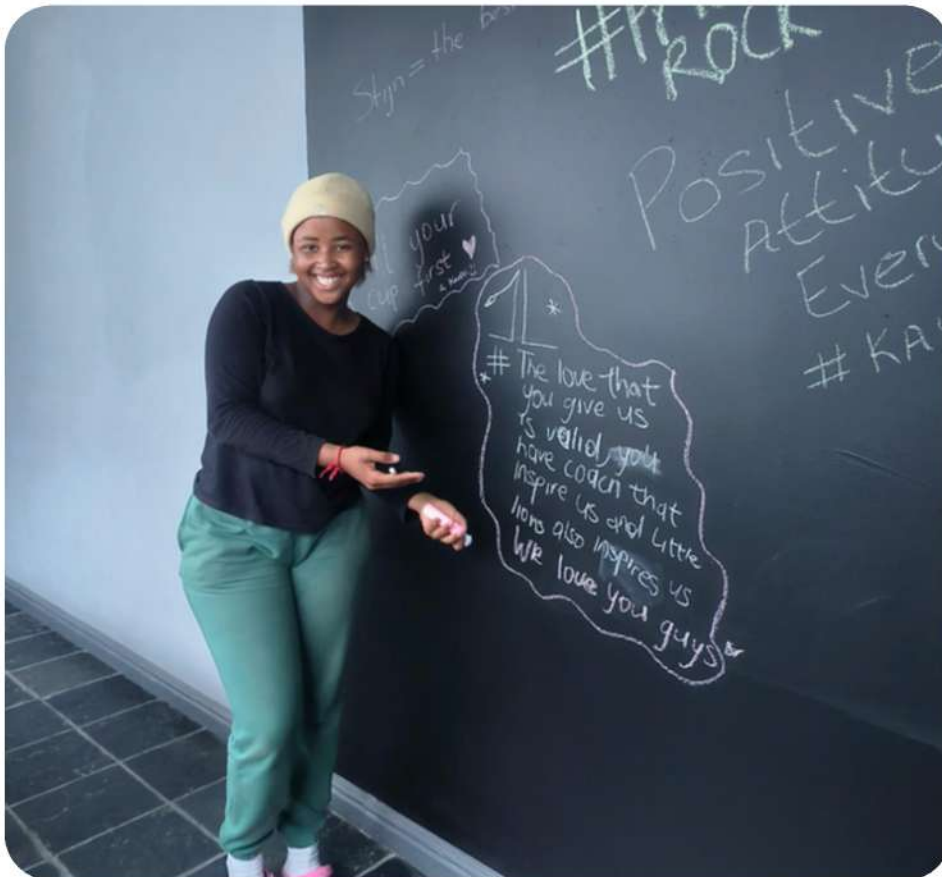 Stijn = the best
ROCK
Positive
Attitu
Every
# KA
your
cup first
# The love that
you give us
is valid, you
have coach that
inspire us and Little
lions also inspires us
We love you guys